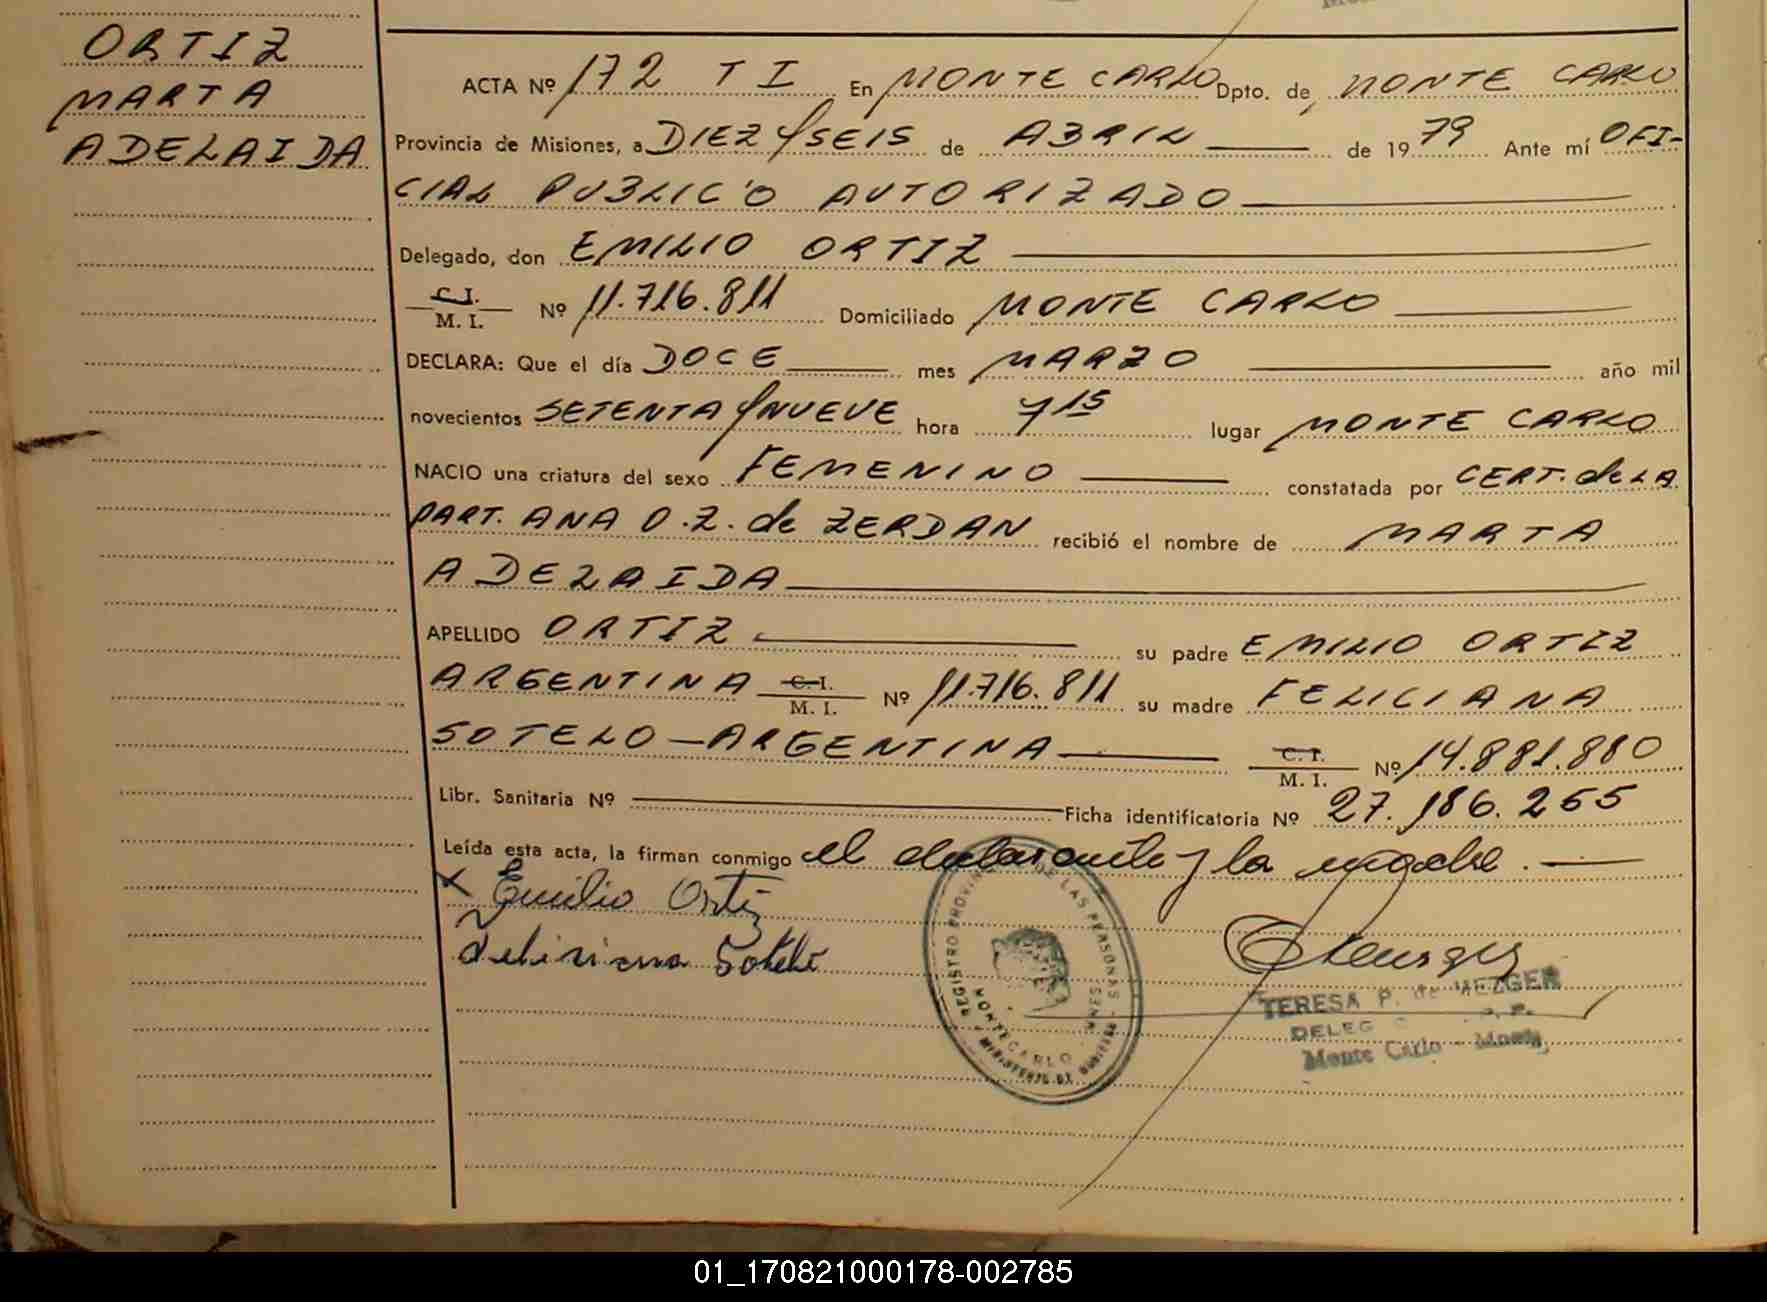 ORTIZ
MARTA
ADELAIDA
ACTA Nº 172 T I En MONTE CARLO Dpto. de MONTE CARLO
Provincia de Misiones, a DIEZ y SEIS de ABRIL de 1979 Ante mí OFI-
CIAL PUBLICO AUTORIZADO
Delegado, don EMILIO ORTIZ
C. I.
M. I. Nº 11.716.811 Domiciliado MONTE CARLO
DECLARA: Que el día DOCE mes MARZO año mil
novecientos SETENTA y NUEVE hora 7 15 lugar MONTE CARLO
NACIO una criatura del sexo FEMENINO constatada por CERT. de LA
PART. ANA O. Z. de ZERDAN recibió el nombre de MARTA
ADELAIDA
APELLIDO ORTIZ su padre EMILIO ORTIZ
ARGENTINA C. I.
M. I. Nº 11.716.811 su madre FELICIANA
SOTELO - ARGENTINA C. I.
M. I. Nº 14.881.880
Libr. Sanitaria Nº Ficha identificatoria Nº 27.186.265
Leída esta acta, la firman conmigo el declarante y la madre.
x Emilio Ortiz
Sotelo
REGISTRO PROVINCIAL DE LAS PERSONAS
MONTECARLO
TERESA P. de MEZGER
DELEG
Monte Carlo - Mnes
01_170821000178-002785